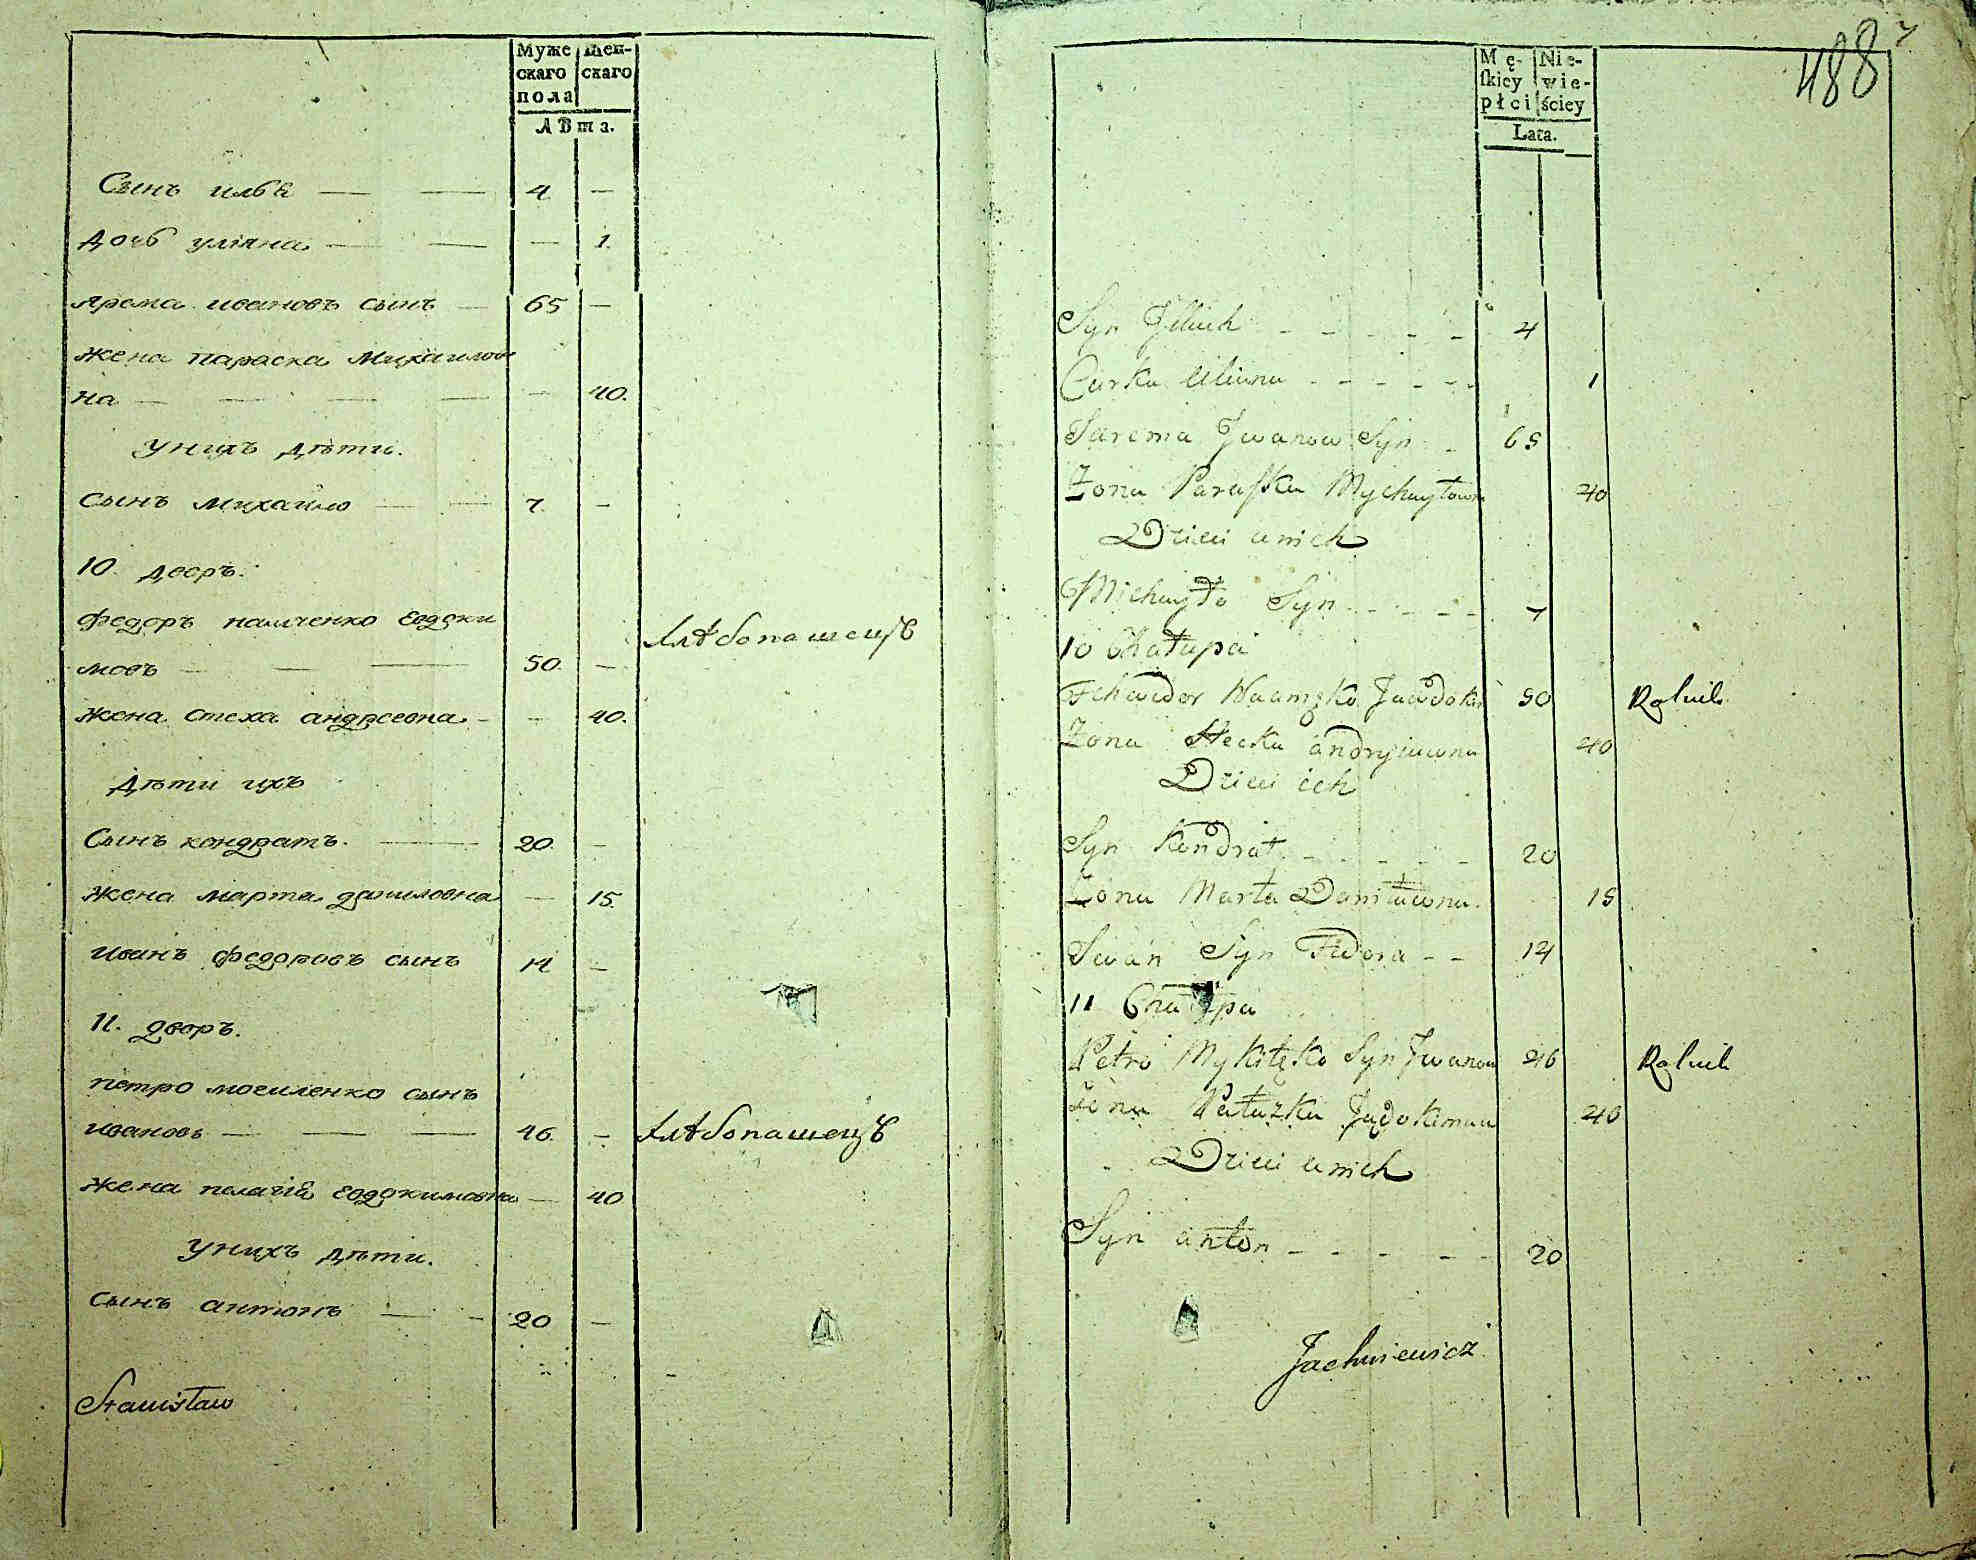 Муже
скаго
пола
Жен-
скаго
Лѣта.
Сынъ илья — — 4 —
дочь уліяна — — — 1.
ярема ивановъ сынъ — 65 —
жена параска михаилов
на — — — — — 40.
унихъ дѣти.
сынъ михаило — — 7 —
10. дворъ.
федоръ наимченко евдоки
мовъ — — — 50. — хлѣбопашецъ
жена стеха андреевна — — 40.
дѣти ихъ
Сынъ кондратъ. — 20. —
жена марта даниловна — 15.
иванъ федоровъ сынъ 14 —
11. дворъ.
петро сынъ
ивановъ — — — 46. — хлѣбопашецъ
жена пелагія евдокимовна — 40
унихъ дѣти.
сынъ антонъ — — 20 —
Stanisław
488
Mę-
skiey
płci
Nie-
wie-
ściey
Lata.
Syn Jlluch - - - - - 4
Curka Uliana - - - - - 1
Jarema Jwanow Syn - 65
Żona Paraska Mychayłown 40
Dzieci unich
Michayło Syn - - - - 7
10 Chałupa
Jawdokim 50 Rolnik
Żona Stecka andryiuwna 40
Dzieci ich
Syn Kondrat - - - - - 20
Żona Marta Daniłuwna. 15
Jwan Syn Fedora - - 14
11 Chałupa
Petro Mykitęko Syn Jwanow 46 Rolnik
Żona Pałazka 40
Dzieci unich
Syn anton - - - - - 20
Jachniewicz